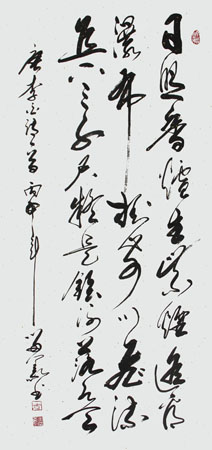 日照香爐生紫煙遥看
瀑布掛前川飛流
直下三千尺疑是銀河落九天
唐李白诗一首丙申年
书